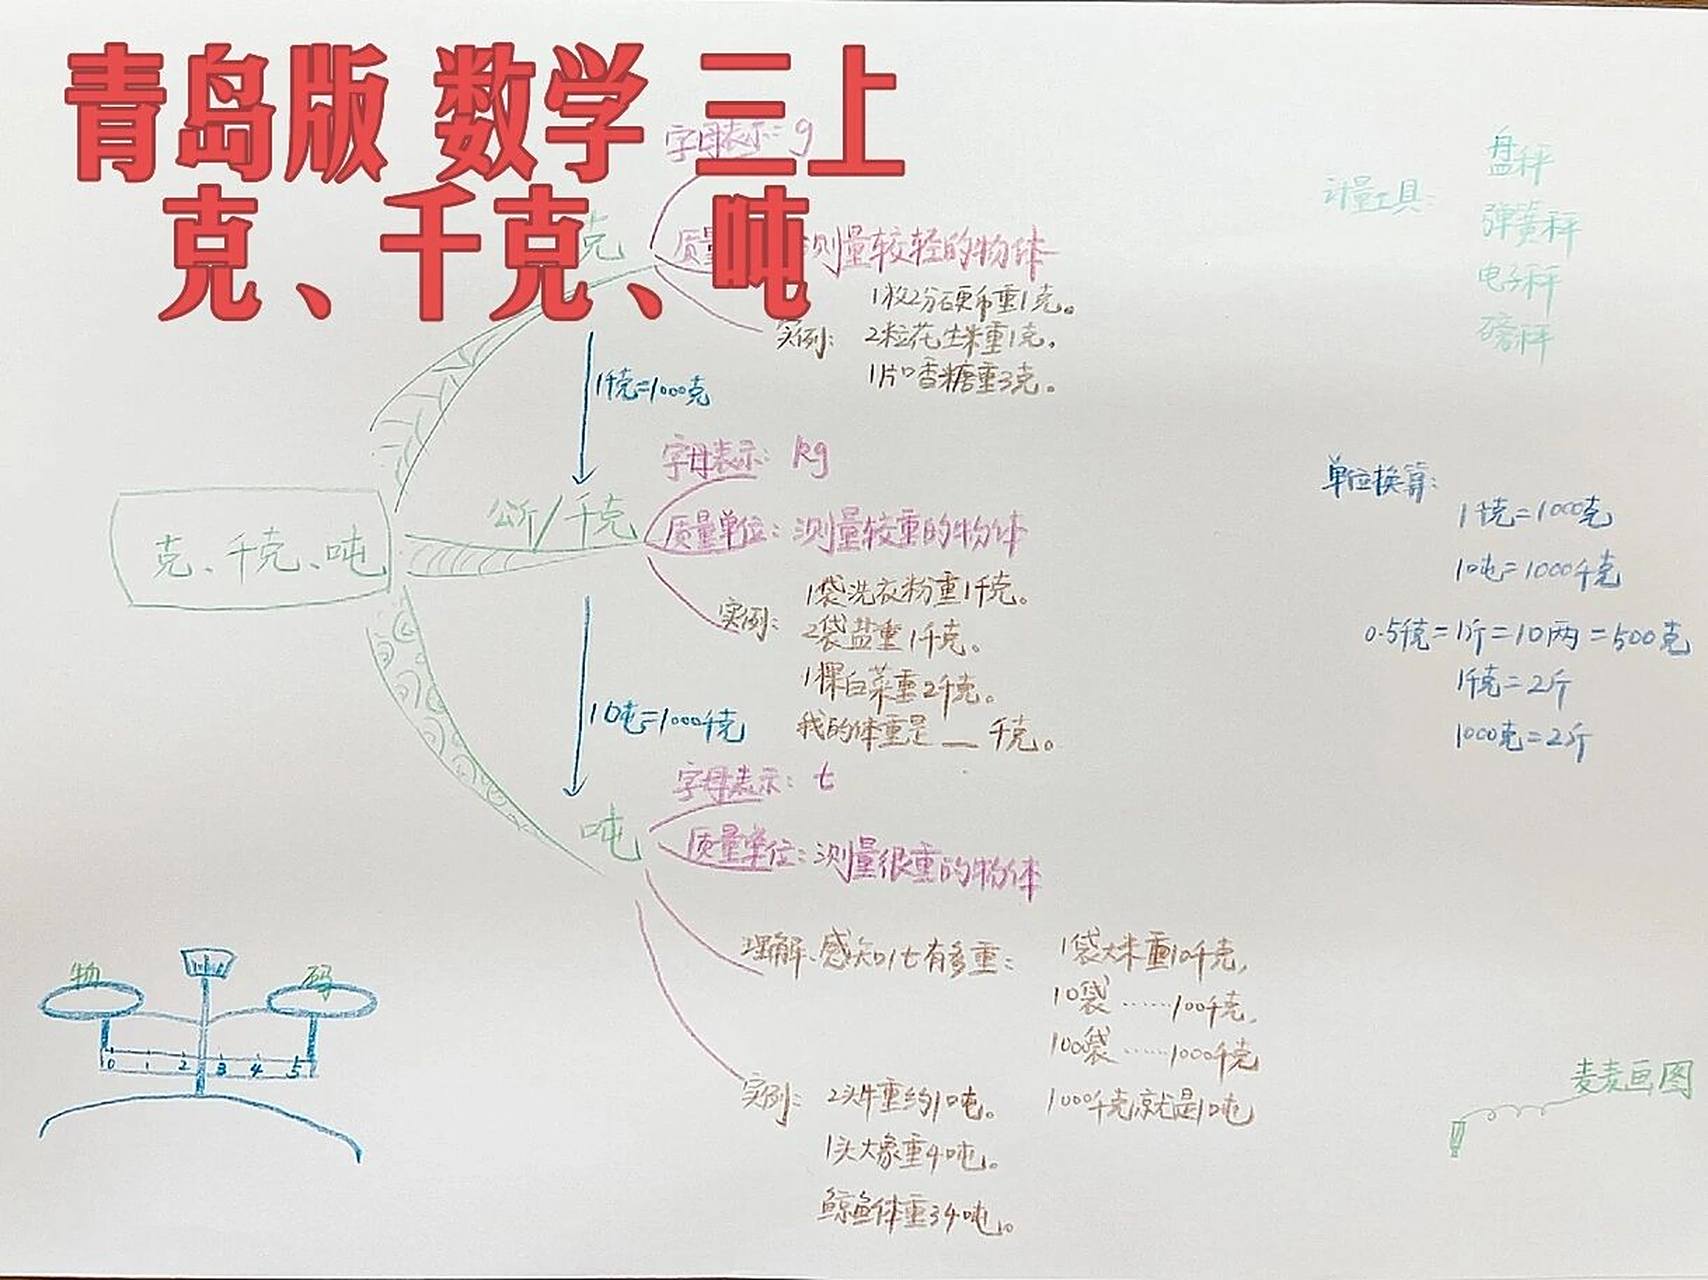 青岛版 数学 三上
克、千克、吨
字母表示: g
克
质量
测量较轻的物体
实例: 1枚2分硬币重1克。
2粒花生米重1克。
1片口香糖重3克。
1千克=1000克
公斤/千克
字母表示: kg
质量单位: 测量较重的物体
实例: 1袋洗衣粉重1千克。
2袋盐重1千克。
1棵白菜重2千克。
我的体重是__千克。
克、千克、吨
1吨=1000千克
吨
字母表示: t
质量单位: 测量很重的物体
理解、感知1t有多重: 1袋大米重10千克,
10袋……100千克,
100袋……1000千克
1000千克就是1吨
实例: 2头牛重约1吨。
1头大象重4吨。
鲸鱼体重34吨。
计量工具:
盘秤
弹簧秤
电子秤
磅秤
单位换算:
1千克=1000克
1吨=1000千克
0.5千克=1斤=10两=500克
1千克=2斤
1000克=2斤
物 码
0 1 2 3 4 5
麦麦画图